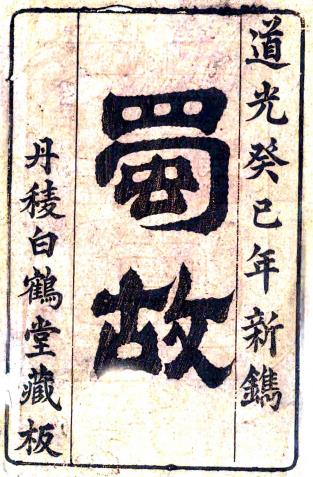 道光癸巳年新鐫
蜀故
丹稜白鶴堂藏板